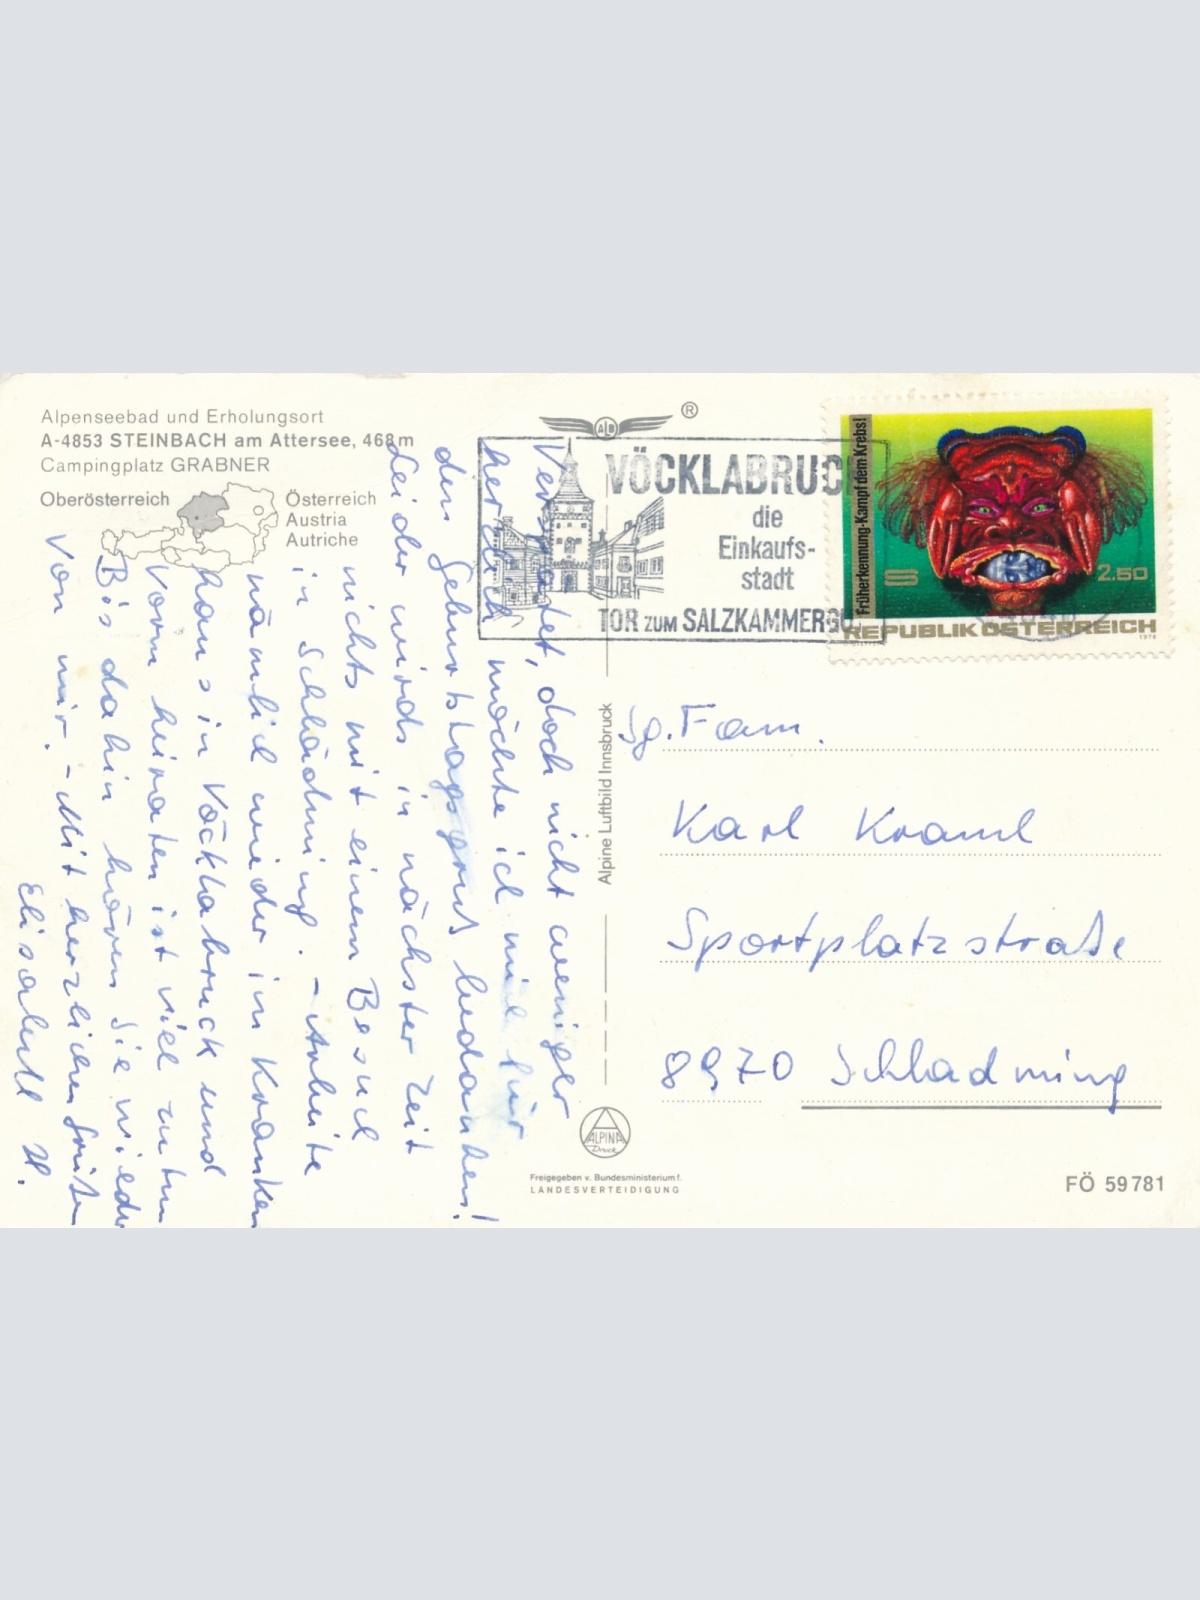 Alpenseebad und Erholungsort
A-4853 STEINBACH am Attersee, 468m
Campingplatz GRABNER
Oberösterreich
Österreich
Austria
Autriche
Verspätet, doch nicht weniger
herzlich möchte ich mich für
den Geburtstagsgruß bedanken!
Leider wirds in nächster Zeit
nichts mit einem Besuch
in Schladming. - Arbeite
nämlich wieder in Kranken
haus in Vöcklabruck und
vorm heiraten ist viel zu tun
Bis dahin hören Sie wieder
von mir. - Mit herzlichen Grüßen
Elisabeth H.
ALB
®
VÖCKLABRUC
die
Einkaufs-
stadt
TOR ZUM SALZKAMMERGU
Früherkennung-Kampf dem Krebs!
S
2.50
REPUBLIK ÖSTERREICH
1976
Alpine Luftbild Innsbruck
Sg. Fam.
Karl Kraml
Sportplatzstraße
8970 Schladming
ALPINA
Druck
Freigegeben v. Bundesministerium f.
LANDESVERTEIDIGUNG
FÖ 59781